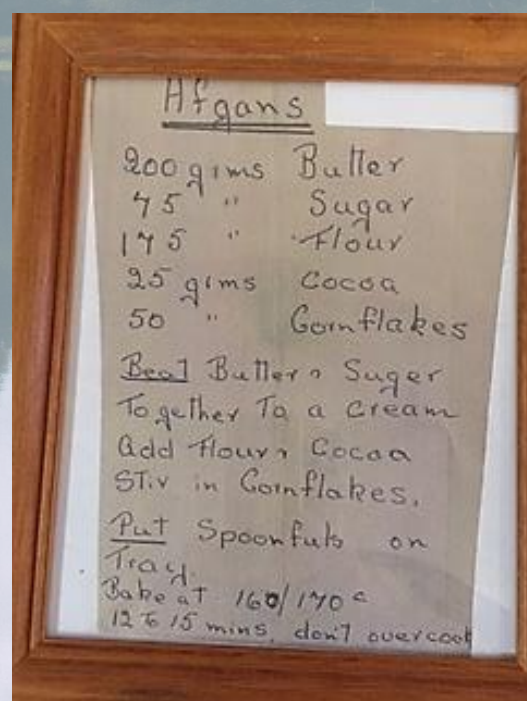 Afgans
200 grms Butter
75 " Sugar
175 " Flour
25 grms Cocoa
50 " Cornflakes
Beat Butter & Suger
Together To a Cream
add Flour & Cocoa
Stir in Cornflakes.
Put Spoonfuls on
Tray.
Bake at 160/170 c
12 to 15 mins, don't overcook